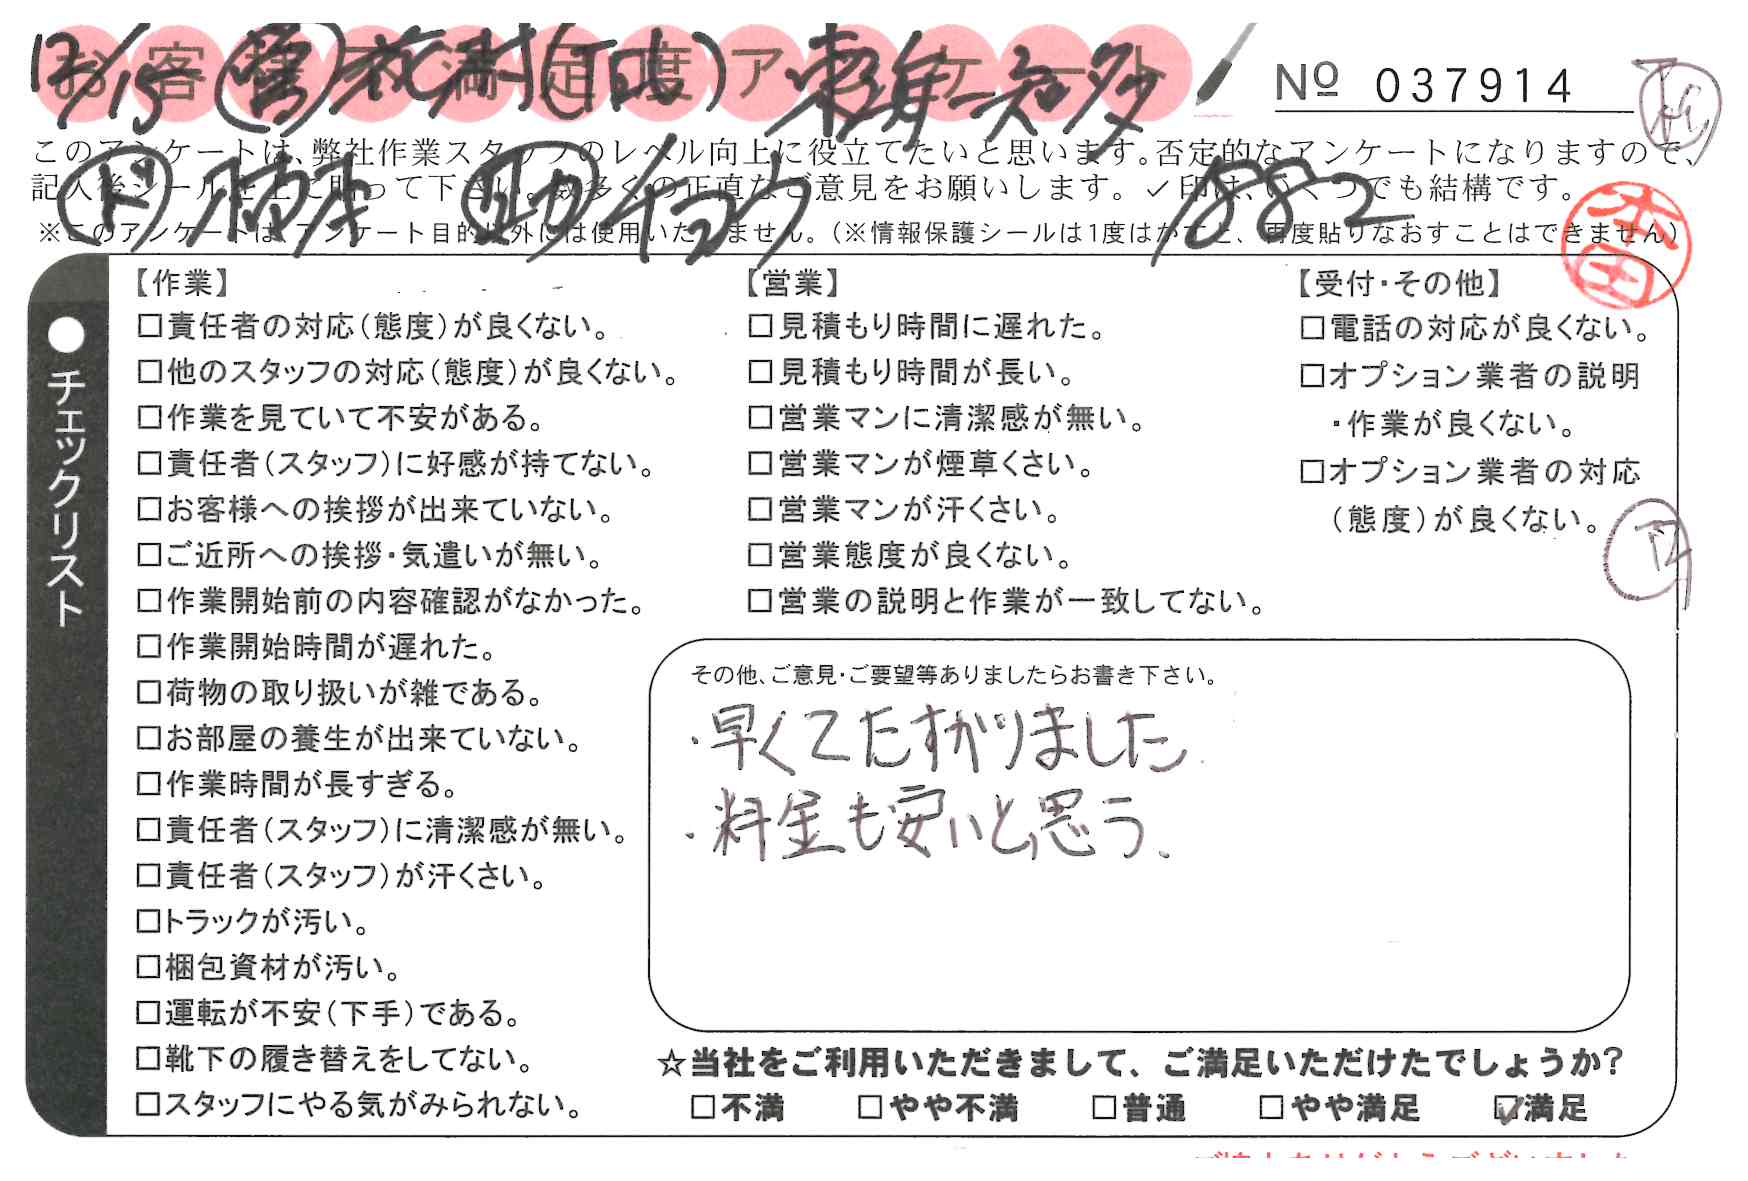 お客様不満足度アンケート
12/15 東海-知多
№ 037914
このアンケートは、弊社作業スタッフのレベル向上に役立てたいと思います。否定的なアンケートになりますので、
記入後シールを上に貼って下さい。数多くの正直なご意見をお願いします。✓印は、いくつでも結構です。
1882
※このアンケートは、アンケート目的以外には使用いたしません。(※情報保護シールは1度はがすと、再度貼りなおすことはできません)
本田
●チェックリスト
【作業】
□責任者の対応(態度)が良くない。
□他のスタッフの対応(態度)が良くない。
□作業を見ていて不安がある。
□責任者(スタッフ)に好感が持てない。
□お客様への挨拶が出来ていない。
□ご近所への挨拶・気遣いが無い。
□作業開始前の内容確認がなかった。
□作業開始時間が遅れた。
□荷物の取り扱いが雑である。
□お部屋の養生が出来ていない。
□作業時間が長すぎる。
□責任者(スタッフ)に清潔感が無い。
□責任者(スタッフ)が汗くさい。
□トラックが汚い。
□梱包資材が汚い。
□運転が不安(下手)である。
□靴下の履き替えをしてない。
□スタッフにやる気がみられない。
【営業】
□見積もり時間に遅れた。
□見積もり時間が長い。
□営業マンに清潔感が無い。
□営業マンが煙草くさい。
□営業マンが汗くさい。
□営業態度が良くない。
□営業の説明と作業が一致してない。
【受付・その他】
□電話の対応が良くない。
□オプション業者の説明
・作業が良くない。
□オプション業者の対応
(態度)が良くない。
その他、ご意見・ご要望等ありましたらお書き下さい。
・早くてたすかりました
・料金も安いと思う、
☆当社をご利用いただきまして、ご満足いただけたでしょうか?
□不満 □やや不満 □普通 □やや満足 ☑満足